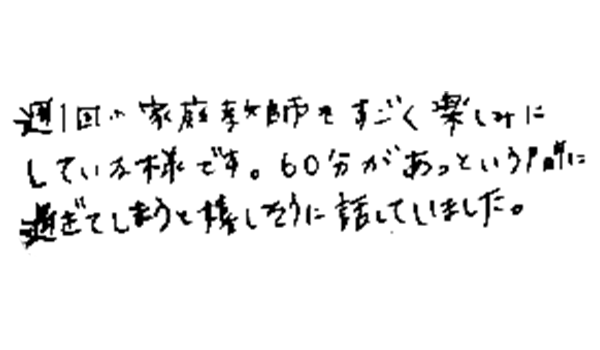 週1回の家庭教師をすごく楽しみに
している様です。60分があっという間に
過ぎてしまうと嬉しそうに話していました。